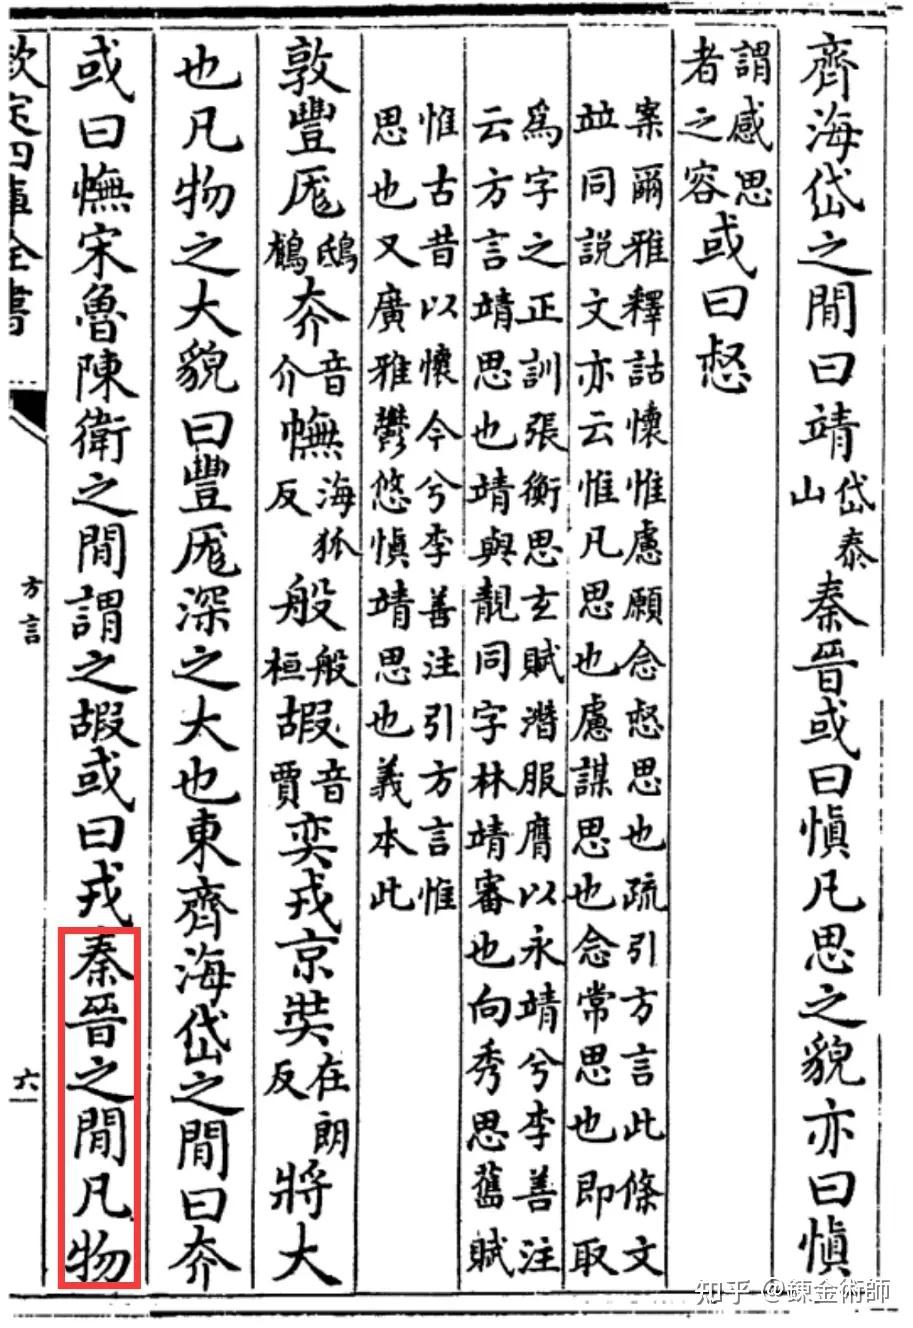 齊海岱之閒曰靖岱泰山秦晉或曰慎凡思之貌亦曰慎
謂感思者之容或曰惄
案爾雅釋詁懷惟慮願念惄思也疏引方言此條文
並同說文亦云惟凡思也慮謀思也念常思也即取
為字之正訓張衡思玄賦潛服膺以永靖兮李善注
云方言靖思也靖與靚同字林靖審也向秀思舊賦
惟古昔以懷今兮李善注引方言惟
思也又廣雅鬱悠慎靖思也義本此
敦豐厖鴟夰音介幠海狐反般般桓嘏音賈奕戎京奘在朗反將大
也凡物之大貌曰豐厖深之大也東齊海岱之閒曰夰
或曰幠宋魯陳衛之閒謂之嘏或曰戎秦晉之閒凡物
欽定四庫全書
方言
六
知乎 @鍊金術師